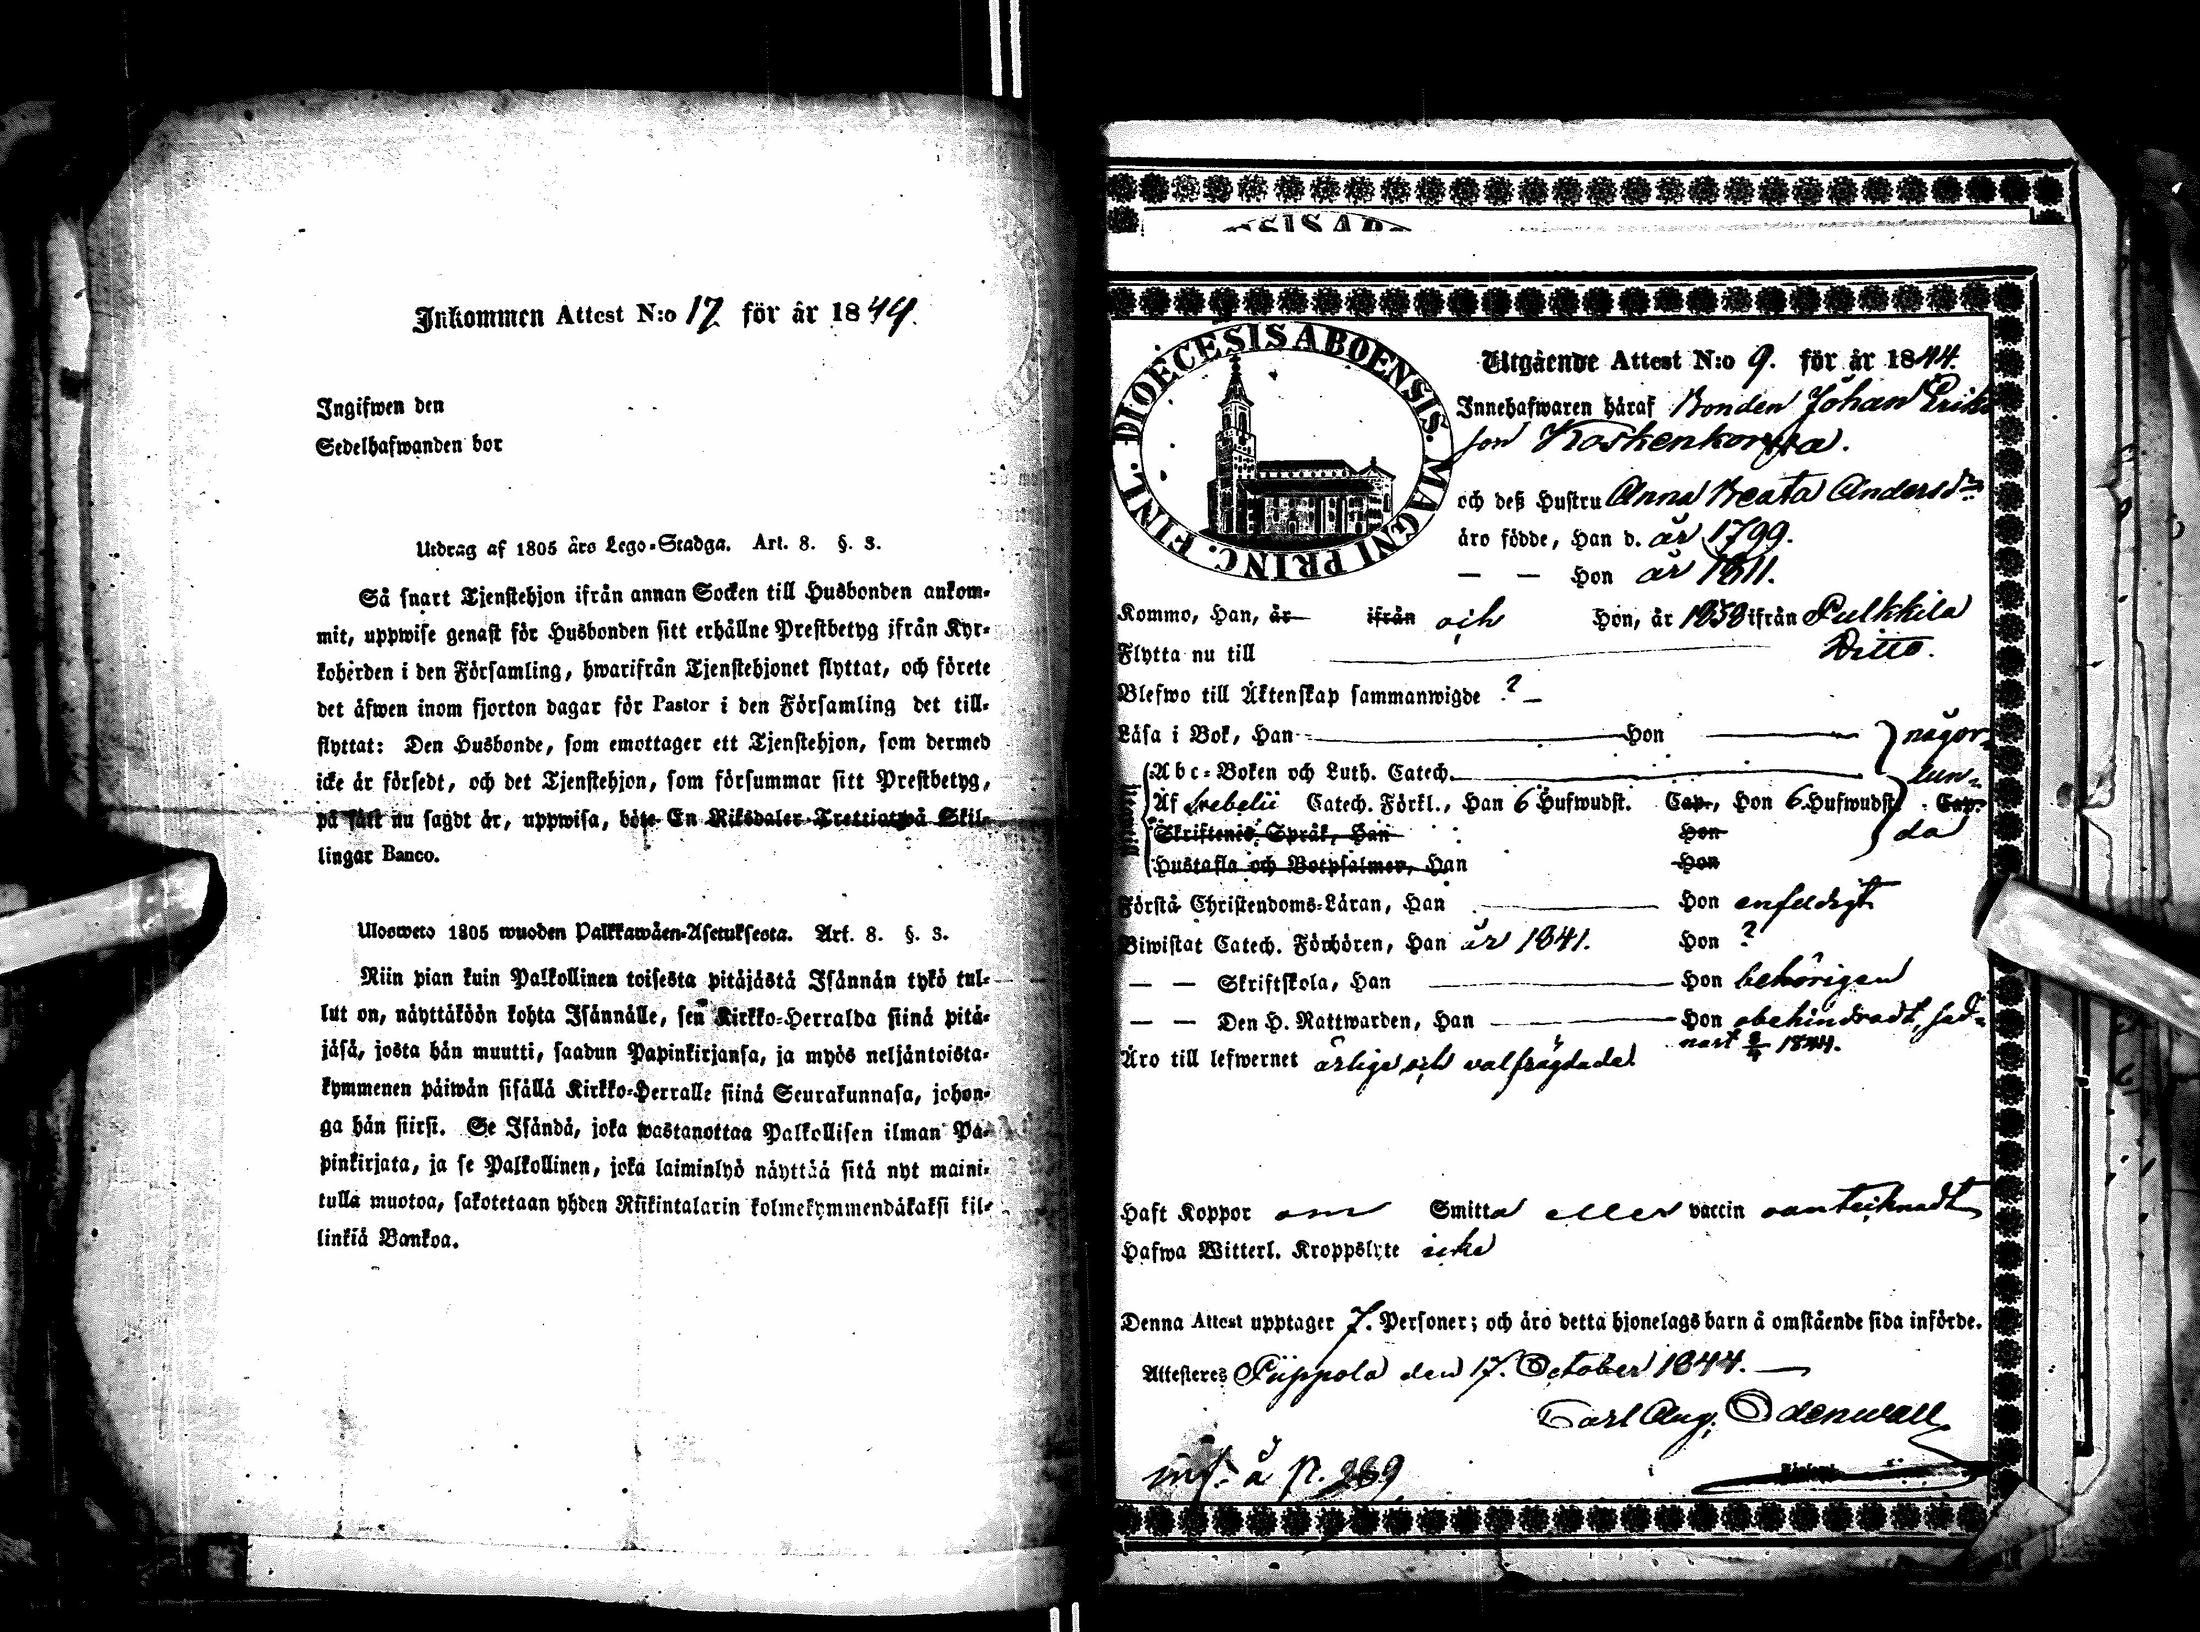 Inkommen Attest N:o 17 för år 1844.
Ingifwen den
Sedelhafwanden bor
Utdrag af 1805 års Lego-Stadga. Art. 8. §. 3.
Så snart Tjenstehjon ifrån annan Socken till Husbonden ankom-
mit, uppwise genast för Husbonden sitt erhållne Prestbetyg ifrån Kyr-
koherden i den Församling, hwarifrån Tjenstehjonet flyttat, och förete
det äfwen inom fjorton dagar för Pastor i den Församling det till-
flyttat: Den Husbonde, som emottager ett Tjenstehjon, som dermed
icke är försedt, och det Tjenstehjon, som försummar sitt Prestbetyg,
på sätt nu sagdt är, uppwisa, böte En Riksdaler Trettiotwå Skil-
lingar Banco.
Ulosweto 1805 wuoden Palkkawäen-Asetuksesta. Art. 8. §. 3.
Niin pian kuin Palkollinen toisesta pitäjästä Isännän tykö tul-
lut on, näyttäköön kohta Isännälle, sen Kirkko-Herralda siinä pitä-
jäsä, josta hän muutti, saadun Papinkirjansa, ja myös neljäntoista-
kymmenen päiwän sisällä Kirkko-Herralle siinä Seurakunnasa, johon-
ga hän siirsi. Se Isändä, joka wastanottaa Palkollisen ilman Pa-
pinkirjata, ja se Palkollinen, joka laiminlyö näyttää sitä nyt maini-
tulla muotoa, sakotetaan yhden Riikintalarin kolmekymmendäkaksi kil-
linkiä Bankoa.
SIS AB
DIOECESIS ABOENSIS. MAGNI PRINC. FINL.
Utgående Attest N:o 9. för år 1844.
Innehafwaren häraf Bonden Johan Eriks
son Koskenkorwa.
och deß Hustru Anna Beata Andersdr
äro födde, Han d. år 1799.
— — Hon år 1811.
Kommo, Han, år ifrån och Hon, år 1838 ifrån Pulkkila
Flytta nu till Ditto.
Blefwo till Äktenskap sammanwigde ? —
Läsa i Bok, Han Hon någor-
Abc-Boken och Luth. Catech. lun-
Af Svebelii Catech. Förkl., Han 6 Hufwudst. Cap., Hon 6 Hufwudst. Cap.
Skriftenes Språk, Han Hon da
Hustafla och Botpsalmer, Han Hon
Förstå Christendoms-Läran, Han Hon enfeldigt
Biwistat Catech. Förhören, Han år 1841. Hon ?
— — Skriftskola, Han Hon behörigen
— — Den H. Nattwarden, Han Hon obehindradt, sed-
nast 1844.
Äro till lefwernet ärlige och välfrägdade.
Haft Koppor om Smitta eller vaccin oanteknadt
Hafwa Witterl. Kroppslyte icke
Denna Attest upptager 7. Personer; och äro detta hjonelags barn å omstående sida införde.
Attesteres Piippola den 17. October 1844. —
Carl Aug. Odenwall
inf. å p. 289